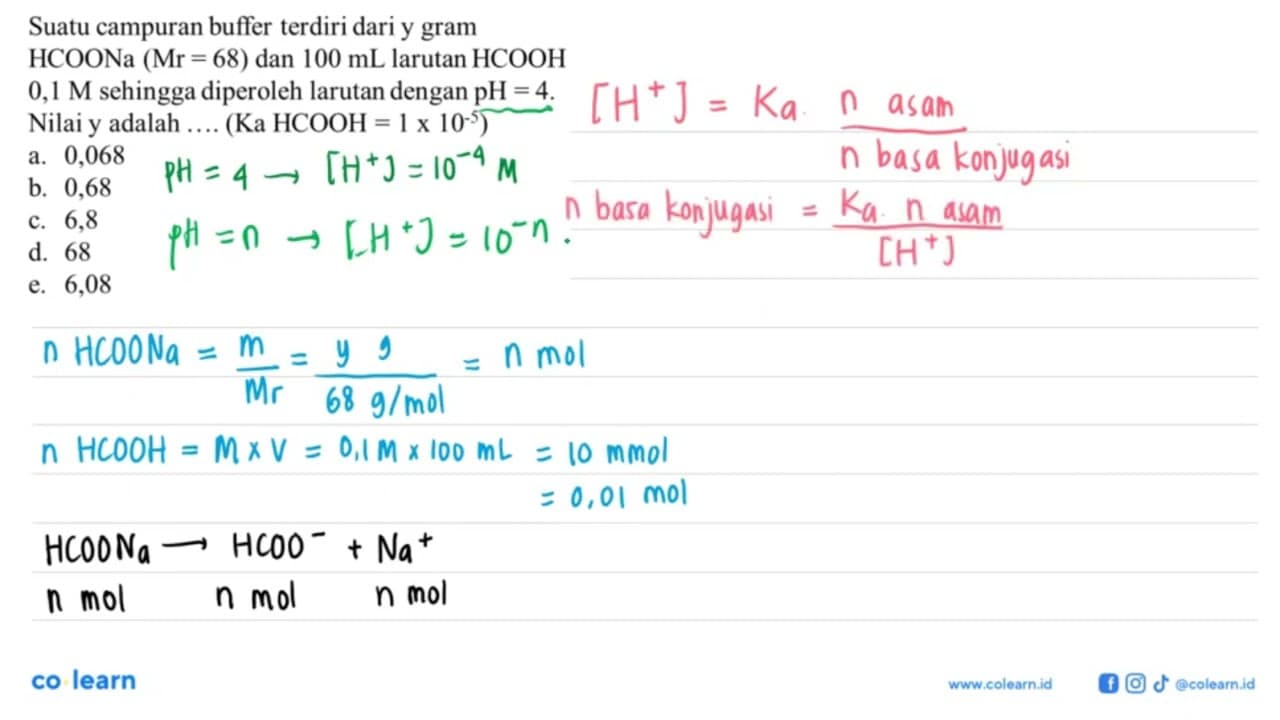 Suatu campuran buffer terdiri dari y gram
HCOONa (Mr = 68) dan 100 mL larutan HCOOH
0,1 M sehingga diperoleh larutan dengan pH = 4.
Nilai y adalah .... (Ka HCOOH = 1 x 10⁻⁵)
a. 0,068
b. 0,68
c. 6,8
d. 68
e. 6,08
pH = 4 → [H⁺] = 10⁻⁴ M
pH = n → [H⁺] = 10⁻ⁿ.
[H⁺] = Ka. n asam
n basa konjugasi
n basa konjugasi = Ka. n asam
[H⁺]
n HCOONa = m = y g = n mol
Mr 68 g/mol
n HCOOH = M x V = 0,1 M x 100 mL = 10 mmol
= 0,01 mol
HCOONa → HCOO⁻ + Na⁺
n mol n mol n mol
co learn
www.colearn.id
@colearn.id